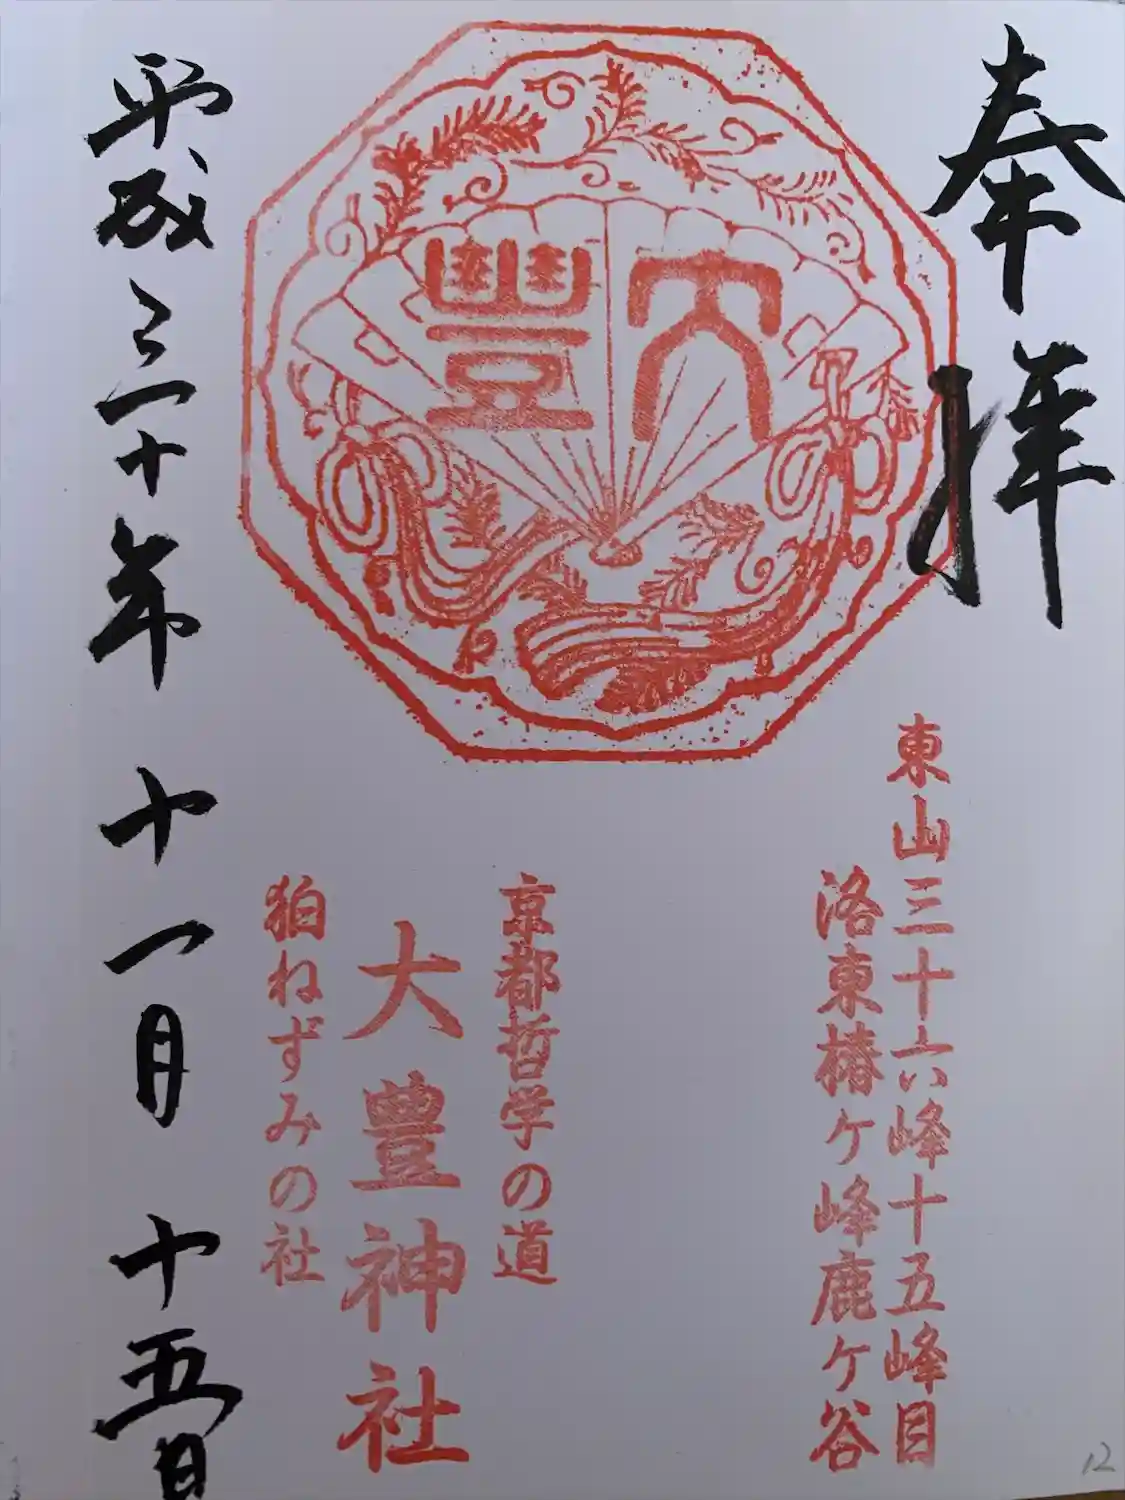 奉拝
東山三十六峰十五峰目
洛東椿ケ峰鹿ケ谷
大豊
京都哲学の道
大豊神社
狛ねずみの社
平成三十年十一月十五日
12